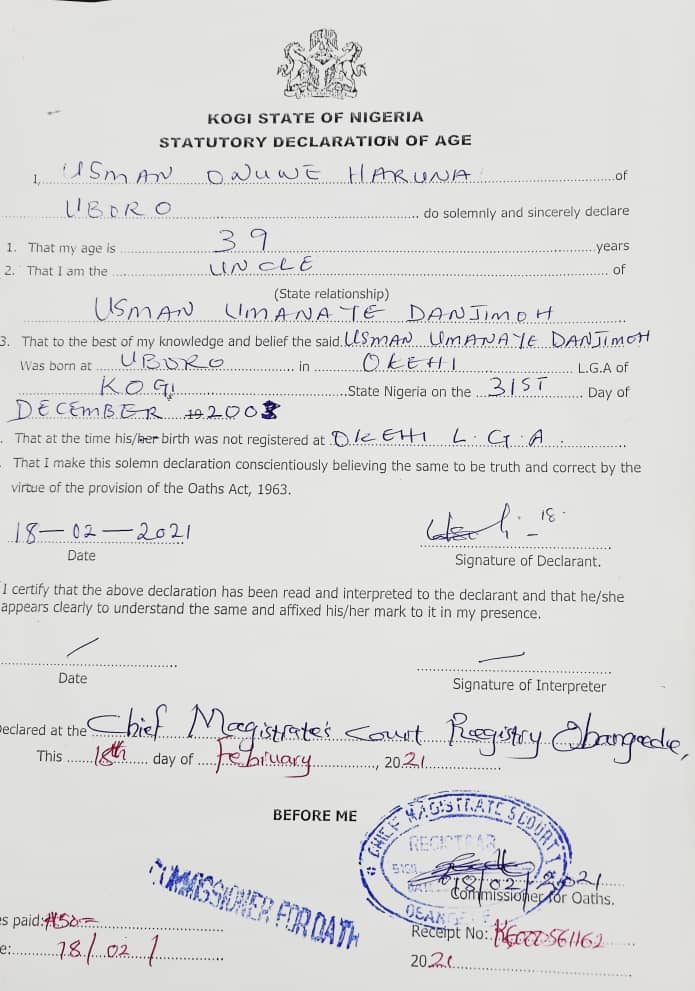 KOGI STATE OF NIGERIA
STATUTORY DECLARATION OF AGE
I, USMAN ONUWE HARUNA of
UBORO do solemnly and sincerely declare
1. That my age is 39 years
2. That I am the UNCLE of
(State relationship)
USMAN UMANAYE DANJIMOH
3. That to the best of my knowledge and belief the said USMAN UMANAYE DANJIMOH
Was born at UBORO in OKEHI L.G.A of
KOGI State Nigeria on the 31ST Day of
DECEMBER 19 2003
. That at the time his/her birth was not registered at OKEHI L.G.A.
. That I make this solemn declaration conscientiously believing the same to be truth and correct by the
virtue of the provision of the Oaths Act, 1963.
18-02-2021
Date
Signature of Declarant.
I certify that the above declaration has been read and interpreted to the declarant and that he/she
appears clearly to understand the same and affixed his/her mark to it in my presence.
Date
Signature of Interpreter
Declared at the Chief Magistrate's Court Registry
This 18th day of February, 2021
BEFORE ME
CHIEF MAGISTRATE'S COURT 1
REGISTRAR
18/02/2021
Commissioner for Oaths.
COMMISSIONER FOR OATH
es paid: ₦50=
Receipt No:
e: 18/02/
2021